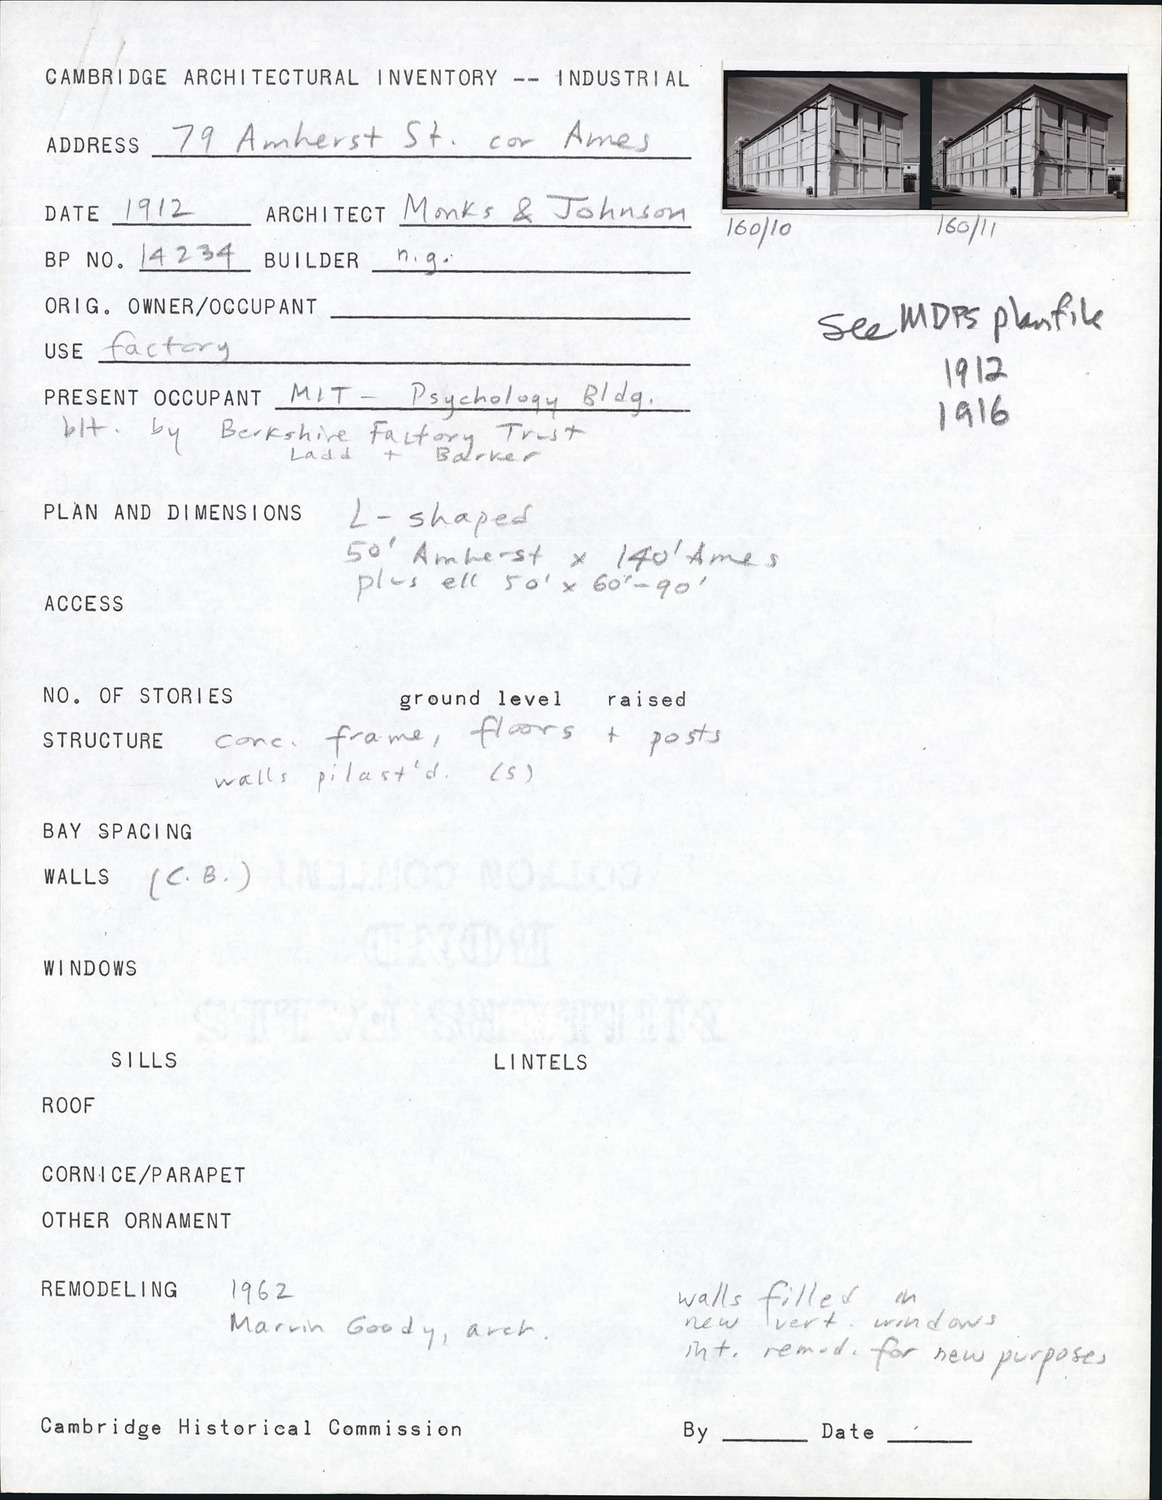 CAMBRIDGE ARCHITECTURAL INVENTORY -- INDUSTRIAL
ADDRESS 79 Amherst St. cor Ames
DATE 1912 ARCHITECT Monks & Johnson
160/10 160/11
BP NO. 14234 BUILDER n.g.
ORIG. OWNER/OCCUPANT
See MDPS planfile
1912
1916
USE factory
PRESENT OCCUPANT MIT - Psychology Bldg.
blt. by Berkshire Factory Trust
Ladd + Barker
PLAN AND DIMENSIONS L-shaped
50' Amherst x 140' Ames
plus ell 50' x 60'-90'
ACCESS
NO. OF STORIES ground level raised
STRUCTURE conc. frame, floors + posts
walls pilast'd. (S)
BAY SPACING
WALLS (C.B.)
WINDOWS
SILLS LINTELS
ROOF
CORNICE/PARAPET
OTHER ORNAMENT
REMODELING 1962
Marvin Goody, arch.
walls filled in
new vert. windows
int. remod. for new purposes
Cambridge Historical Commission By Date